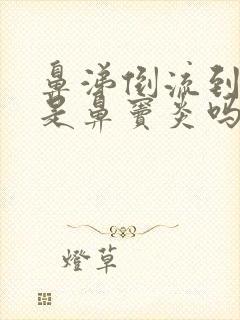 鼻涕倒流到
是鼻窦炎吗
燈草